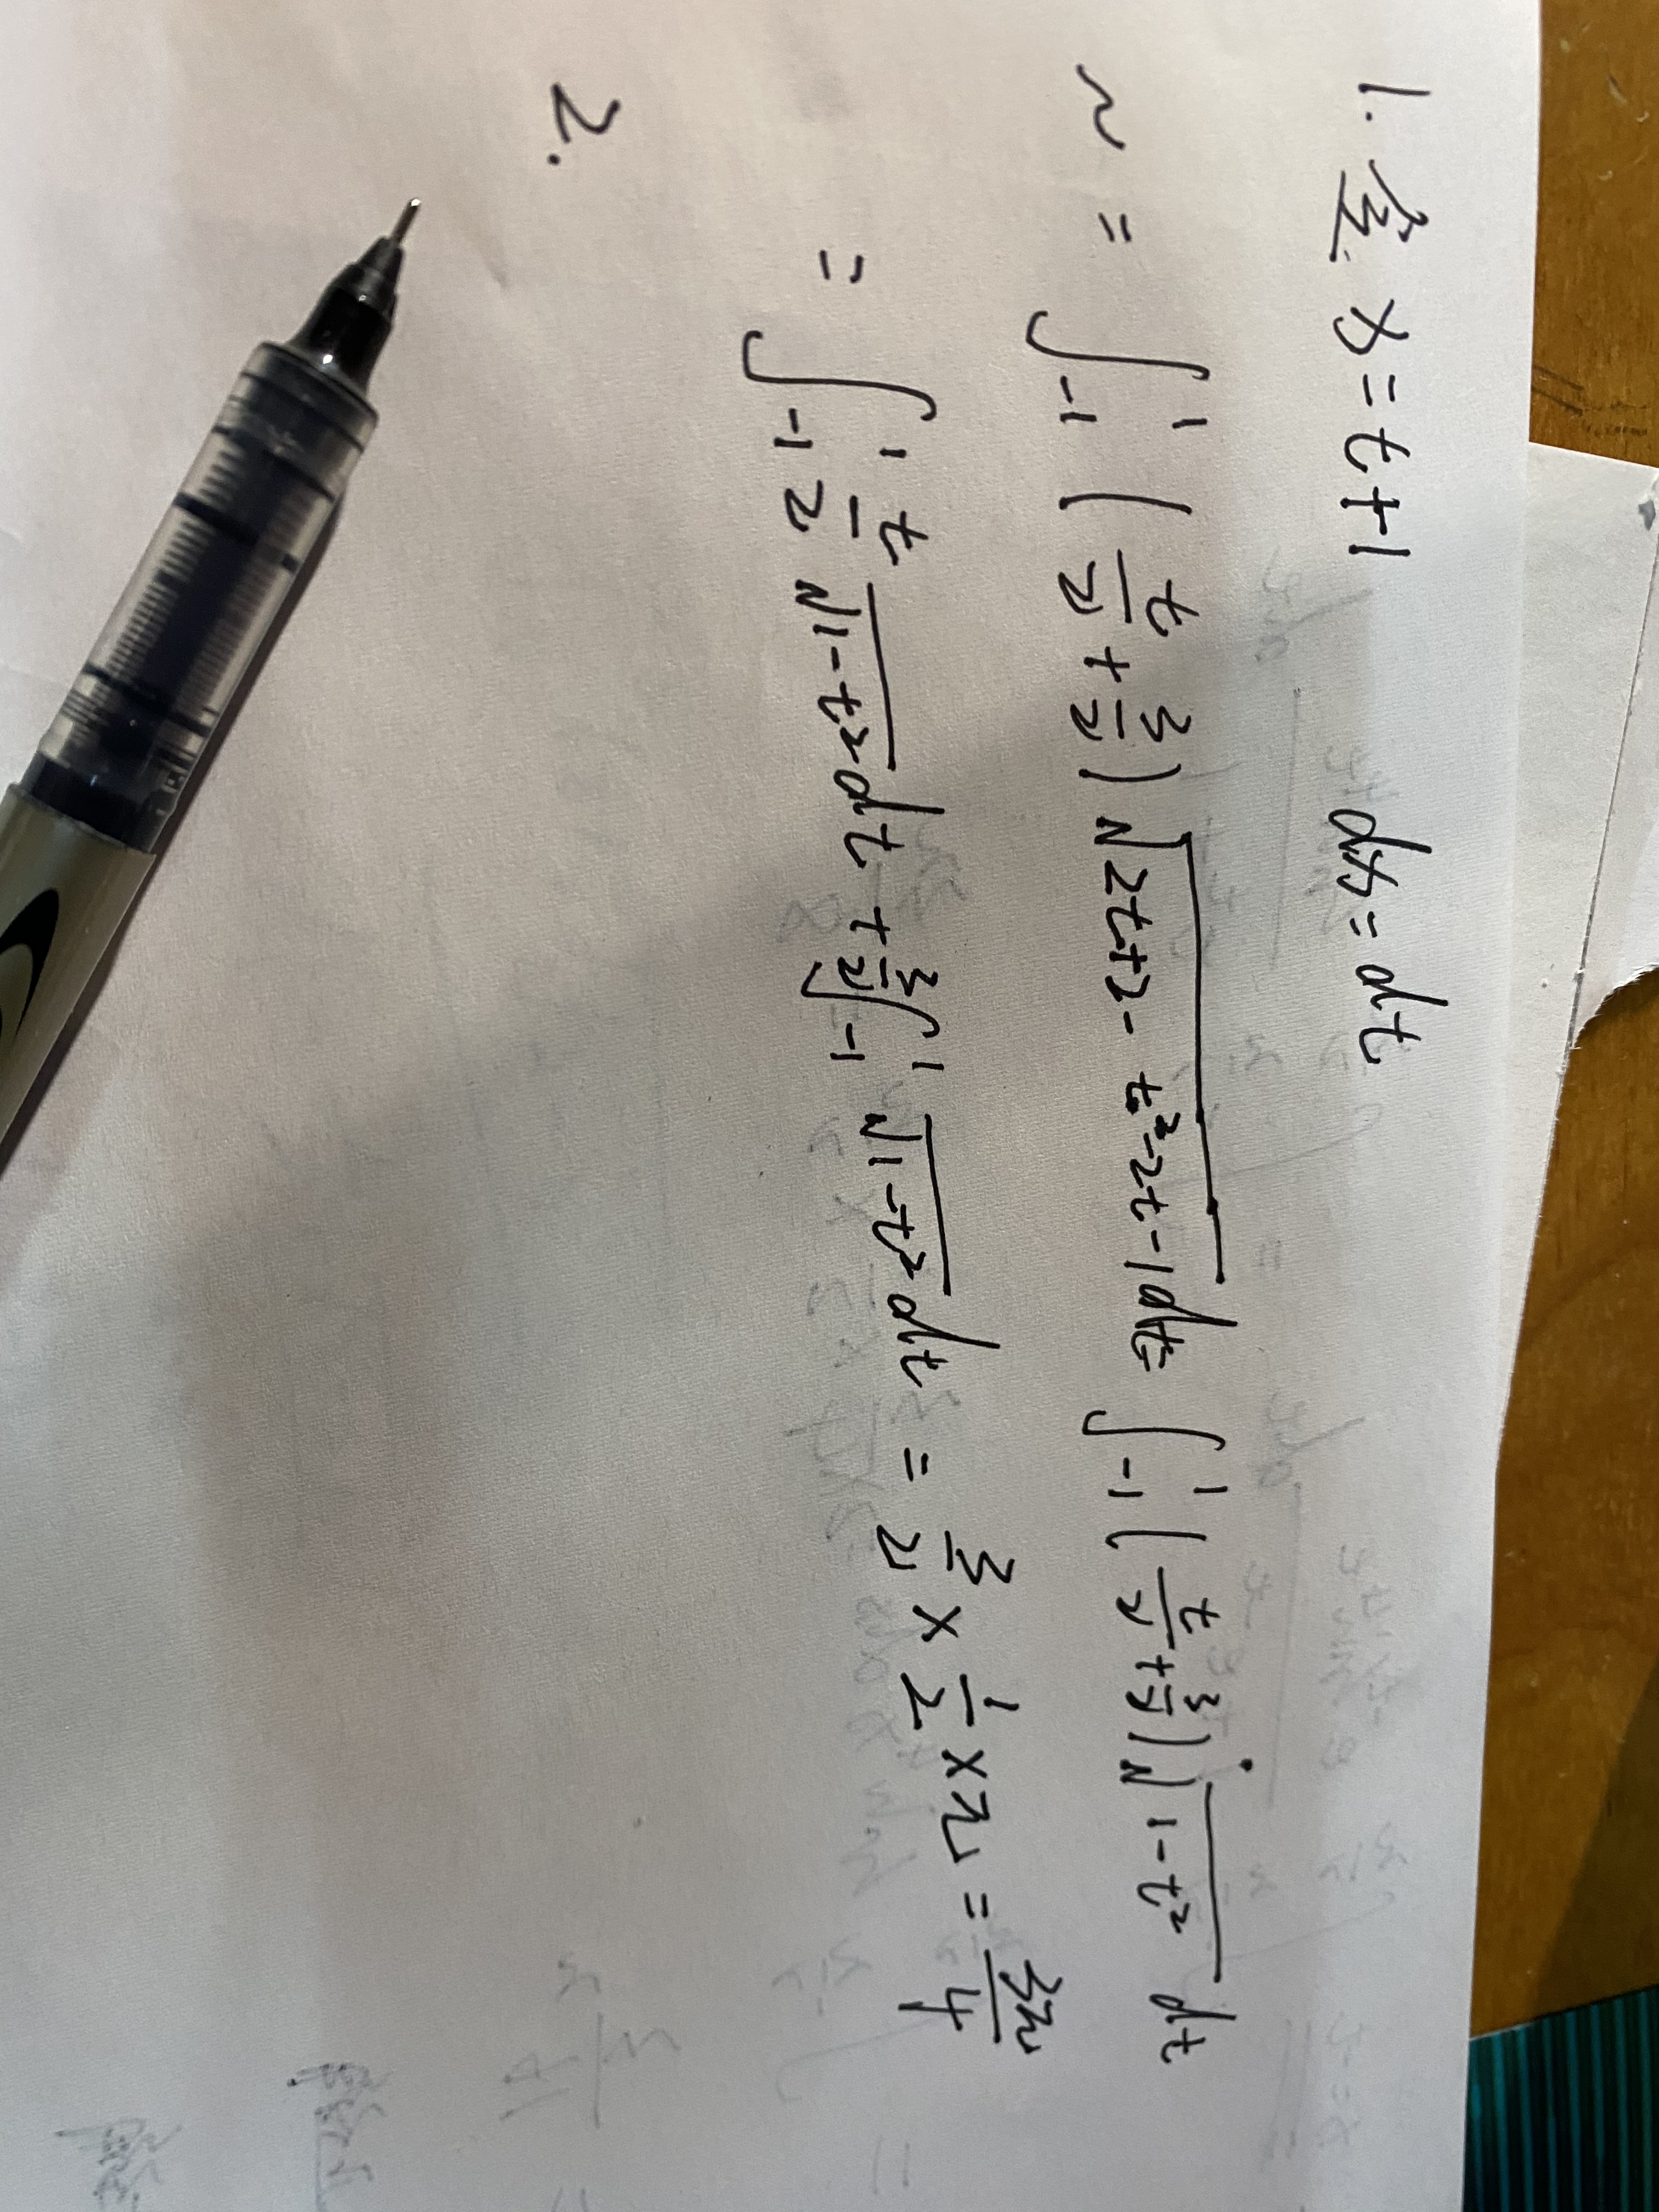 1. 令 x = t + 1 dx = dt
~ = ∫₋₁¹ (t/2 + 3/2) √(2t+2-t²-2t-1) dt = ∫₋₁¹ (t/2 + 3/2) √(1-t²) dt
= ∫₋₁¹ t/2 √(1-t²) dt + 3/2 ∫₋₁¹ √(1-t²) dt = 3/2 × 1/2 × π = 3π/4
2.